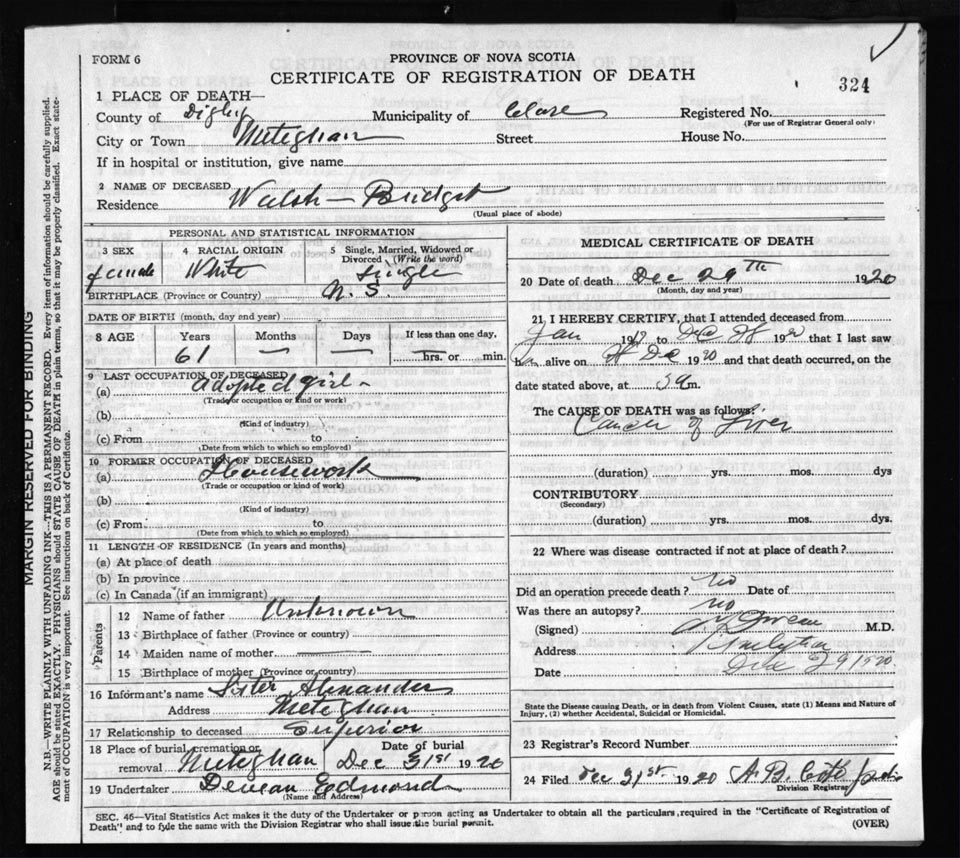 FORM 6
PROVINCE OF NOVA SCOTIA
CERTIFICATE OF REGISTRATION OF DEATH
324
1 PLACE OF DEATH—
County of Digby Municipality of Clare Registered No.
(For use of Registrar General only)
City or Town Meteghan Street House No.
If in hospital or institution, give name
2 NAME OF DECEASED Walsh — Bridget
Residence
(Usual place of abode)
PERSONAL AND STATISTICAL INFORMATION
3 SEX 4 RACIAL ORIGIN 5 Single, Married, Widowed or Divorced (Write the word)
female White Single
BIRTHPLACE (Province or Country) N. S.
DATE OF BIRTH (month, day and year)
8 AGE Years Months Days If less than one day,
61 — — — hrs. or min.
9 LAST OCCUPATION OF DECEASED
(a) Adopted girl -
(Trade or occupation or kind or work)
(b)
(Kind of industry)
(c) From to
(Date from which to which so employed)
10 FORMER OCCUPATION OF DECEASED
(a) Housework
(Trade or occupation or kind of work)
(b)
(Kind of industry)
(c) From to
(Date from which to which so employed)
11 LENGTH OF RESIDENCE (In years and months)
(a) At place of death
(b) In province
(c) In Canada (if an immigrant)
Parents
12 Name of father Unknown
13 Birthplace of father (Province or country)
14 Maiden name of mother —
15 Birthplace of mother (Province or country)
16 Informant's name Sister Alexander
Address Meteghan
17 Relationship to deceased Superior
18 Place of burial, cremation or removal Meteghan Date of burial Dec 31st 1920
19 Undertaker Deveau Edmond
(Name and Address)
MEDICAL CERTIFICATE OF DEATH
20 Date of death Dec 29TH 1920
(Month, day and year)
21 I HEREBY CERTIFY, that I attended deceased from
Jan 19 to Dec 1920 that I last saw
alive on Dec 1920 and that death occurred, on the
date stated above, at m.
The CAUSE OF DEATH was as follows:
Cancer of Liver
(duration) yrs. mos. dys
CONTRIBUTORY
(Secondary)
(duration) yrs. mos. dys.
22 Where was disease contracted if not at place of death?
Did an operation precede death? no Date of
Was there an autopsy? no
(Signed) M.D.
Address Meteghan
Date Dec 29 1920
State the Disease causing Death, or in death from Violent Causes, state (1) Means and Nature of
Injury, (2) whether Accidental, Suicidal or Homicidal.
23 Registrar's Record Number
24 Filed Dec 31st. 1920 A. B.
Division Registrar
SEC. 46—Vital Statistics Act makes it the duty of the Undertaker or person acting as Undertaker to obtain all the particulars required in the "Certificate of Registration of
Death" and to fyle the same with the Division Registrar who shall issue the burial permit. (OVER)
MARGIN RESERVED FOR BINDING
N.B.—WRITE PLAINLY WITH UNFADING INK—THIS IS A PERMANENT RECORD. Every item of information should be carefully supplied.
AGE should be stated EXACTLY. PHYSICIANS should STATE CAUSE OF DEATH in plain terms, so that it may be properly classified. Exact state-
ment of OCCUPATION is very important. See instructions on back of Certificate.